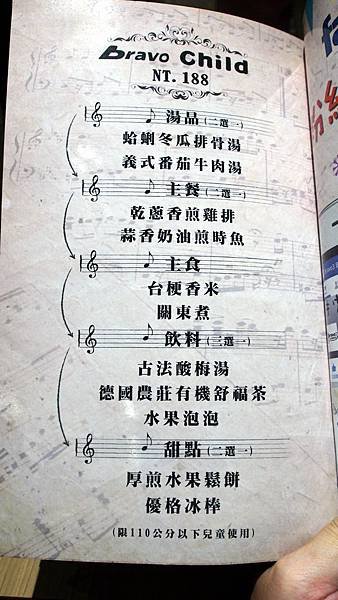 Bravo Child
NT. 188
湯品(二選一)
蛤蜊冬瓜排骨湯
義式番茄牛肉湯
主餐(二選一)
乾蔥香煎雞排
蒜香奶油煎時魚
主食
台梗香米
關東煮
飲料(三選一)
古法酸梅湯
德國農莊有機舒福茶
水果泡泡
甜點(二選一)
厚煎水果鬆餅
優格冰棒
(限110公分以下兒童使用)